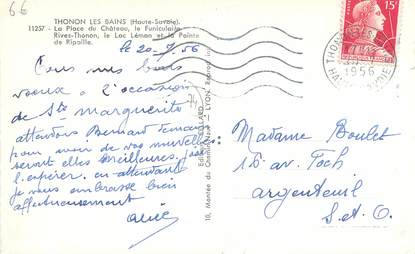 66
THONON LES BAINS (Haute-Savoie).
11257 - La Place du Château, le Funiculaire
Rives-Thonon, le Lac Léman et la Pointe
de Ripaille.
le 20-7/56
Tous nos bons
voeux à l'occasion
de Ste marguerite
attendons Bernard
pour avoir de vos nouvelles
seront elles meilleures.
l'espérer. en attendant
je vous embrasse bien
affectueusement
alice
10, Montée du LYON
15F
THONON
1956
Madame Boulet
1 av. Foch
argenteuil
S.et.O.